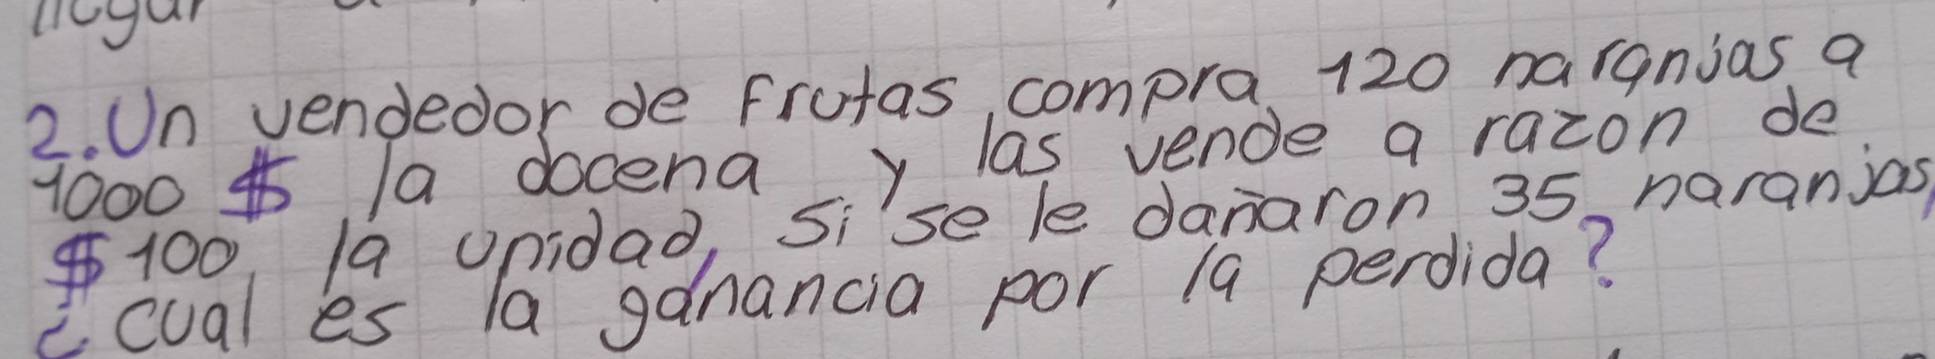 2. Un vendedor de frutas compra 120 naranjas a
1000 $ la docena y las vende a razon de
$ 100, la unidad, si se le dañaron 35 naranjas,
¿ cual es la ganancia por la perdida?